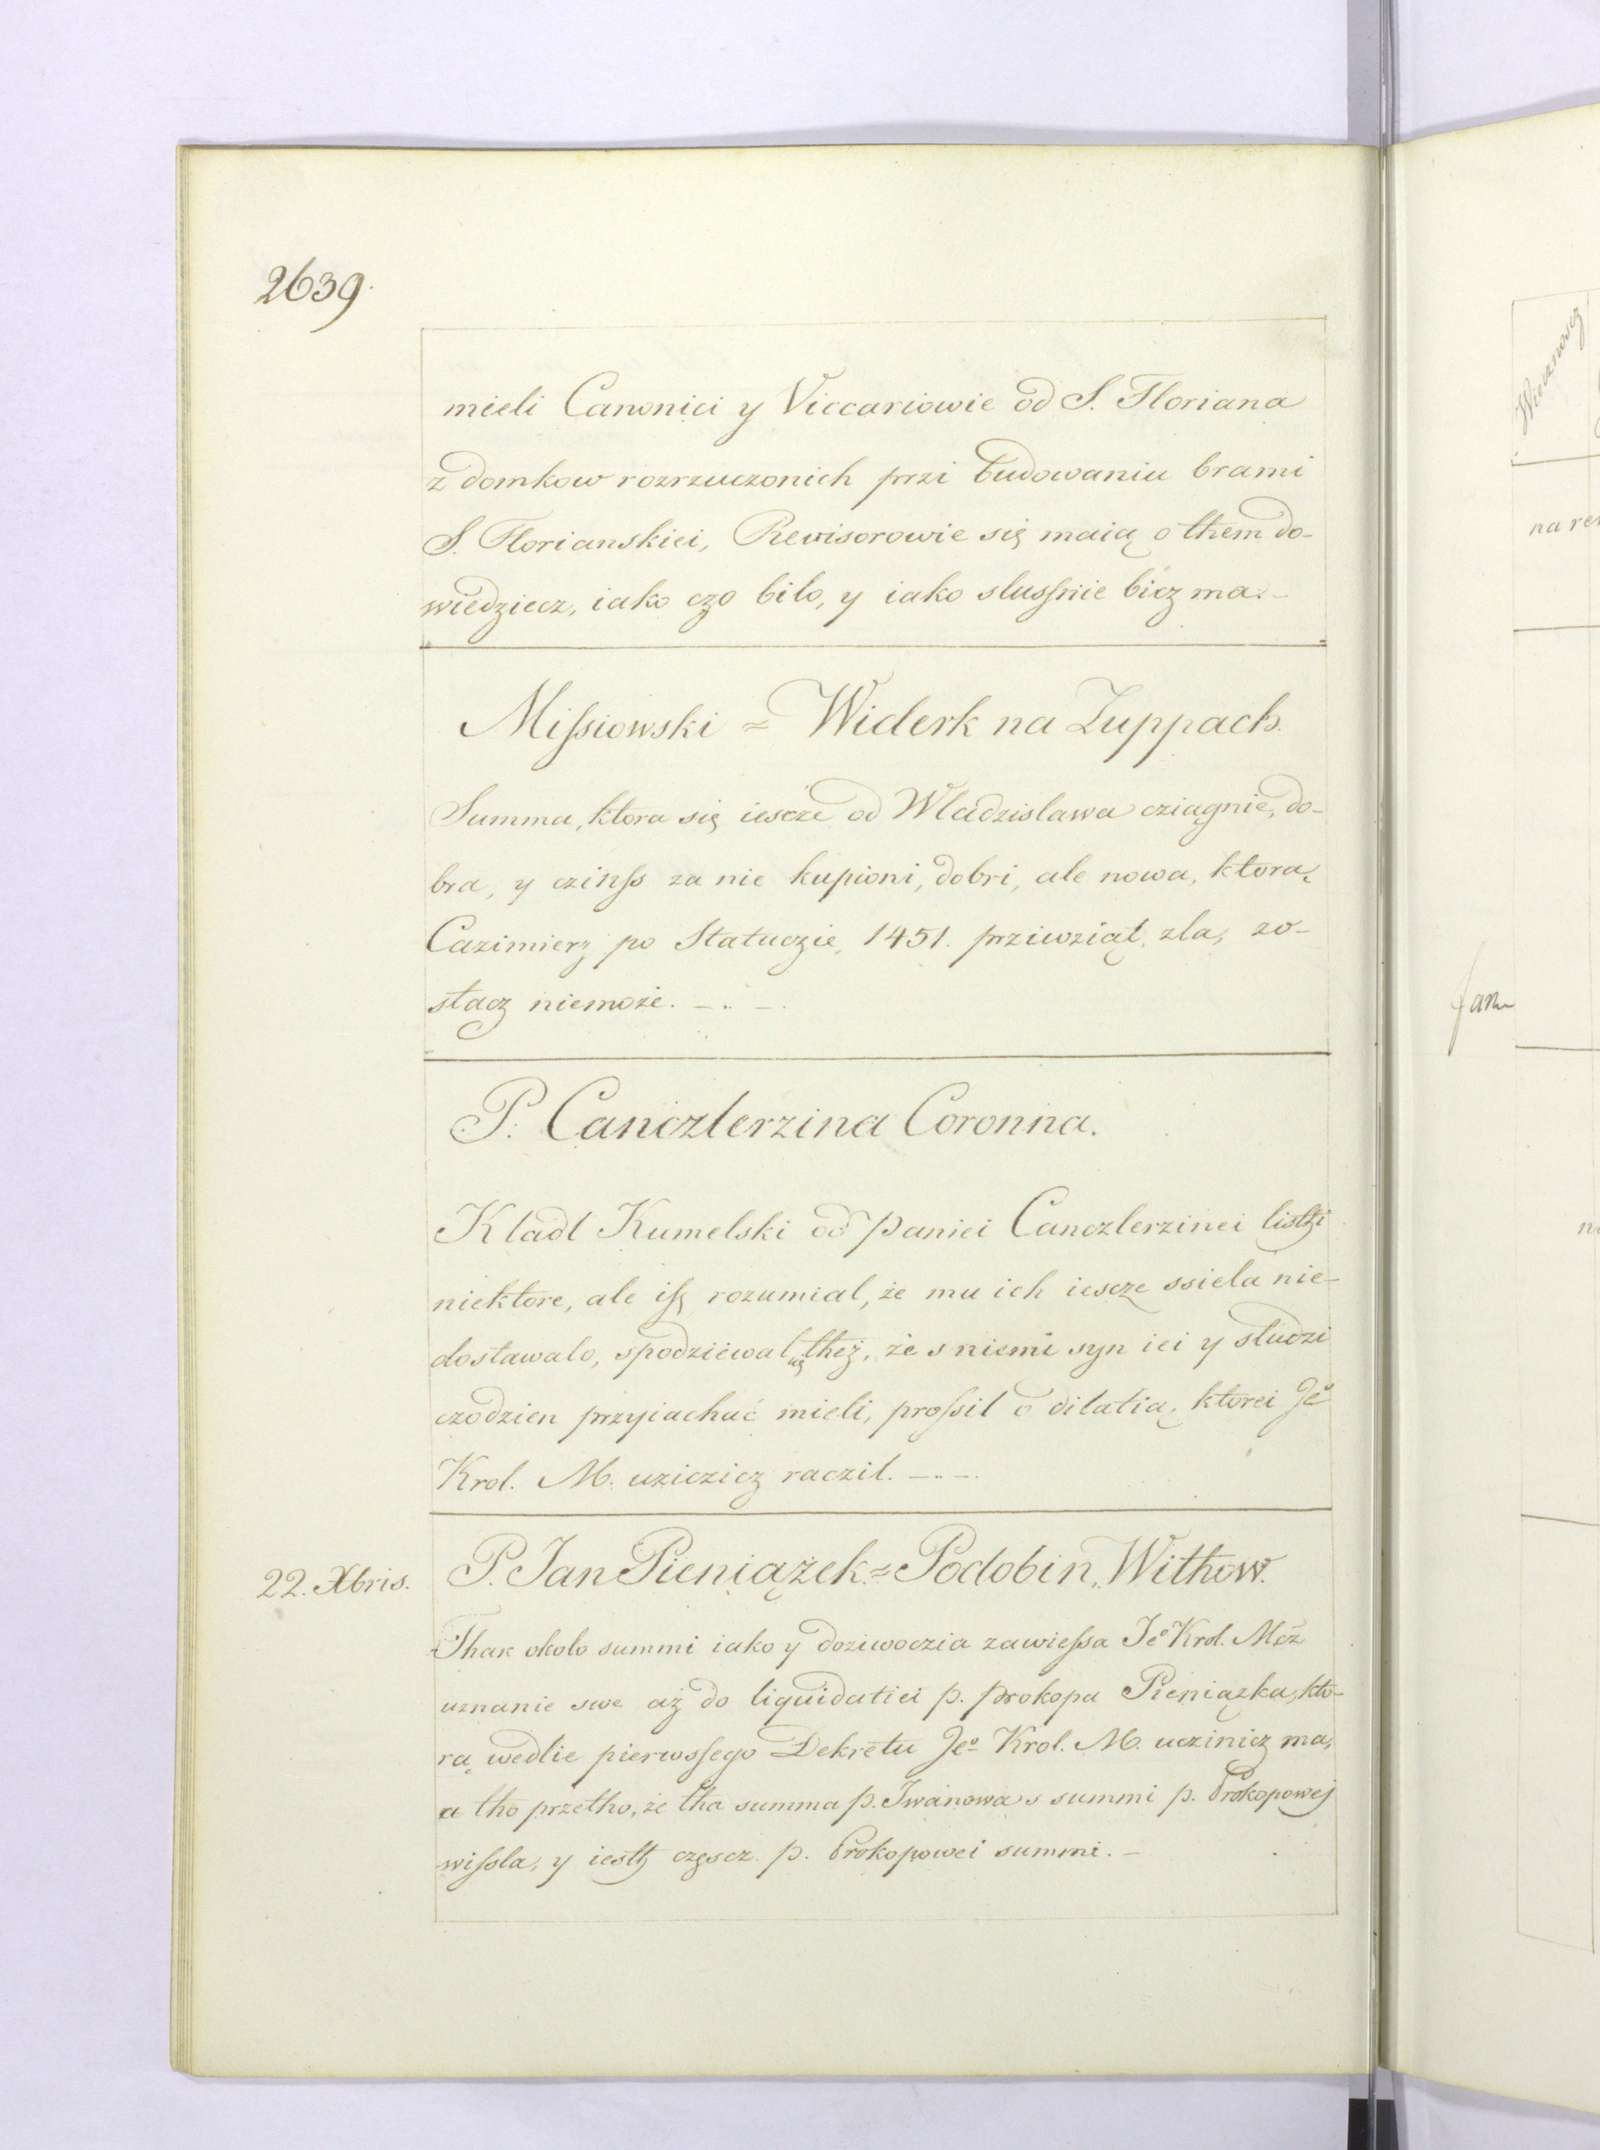 2639.
mieli Canonici y Viccariowie od S. Floriana
z domkow rozrzuczonich przi budowaniu brami
S. Florianskiei, Rewisorowie się maią o them do-
wiedziecz, iako czo bilo, y iako slusſnie bicz ma. -
Miſsiowski = Widerk na Zuppach.
Summa, ktora się iescze od Wladzislawa cziągnie, do-
bra, y czinſs za nie kupioni, dobri, ale nowa, ktorą
Cazimierz po Statuczie, 1451. prziwziął, zla, zo-
stacz niemoże. -.-
P. Canczlerzina Coronna.
Kladl Kumelski od paniei Canczlerzinei listhi
niektore, ale iſz rozumial, że mu ich iescze ssiela nie-
dostawalo, spodziewal się theż, że s niemi syn iei y sludzi
czodzien przyiachać mieli, proſsil o dilatią, ktorei Jeo
Krol. M. uziczicz raczil. -.-.
22. Xbris.
P. Jan Pieniążek = Podobin, Withow.
Thak okolo summi iako y dożiwoczia zawieſsa Jeo Krol. Mcz
uznanie swe aż do liquidatiei p. prokopa Pieniązka, kto-
rą wedlie pierwsſego Dekretu Jeo Krol. M. uczinicz ma,
a tho przetho, że tha summa p. Iwanowa s summi p. Prokopowej
wiſsla, y iesth częscz p. Prokopowei summi. -
Wiecznoscz
na re
fam